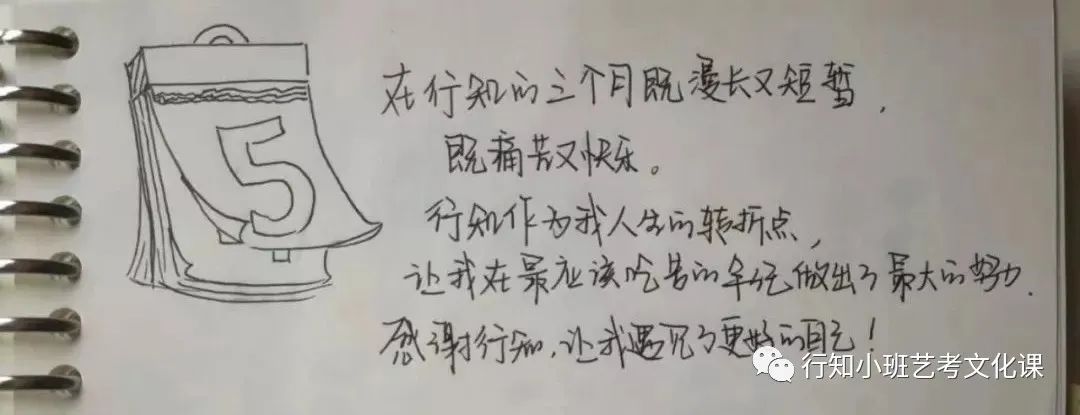 在行知的三个月既漫长又短暂,
既痛苦又快乐。
5
行知作为我人生的转折点,
让我在最应该吃苦的年纪做出了最大的努力.
感谢行知,让我遇见了更好的自己!
行知小班艺考文化课